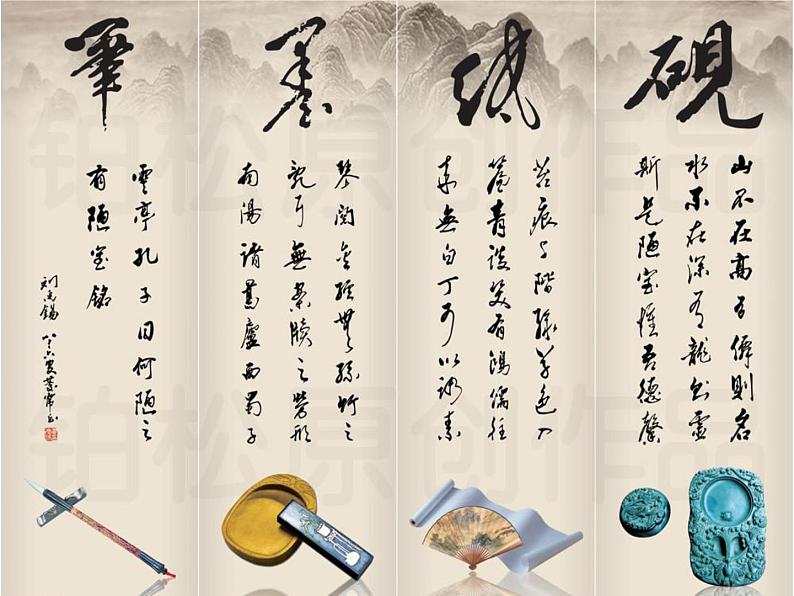 硯
山不在高有僊則名
水不在深有龍則靈
斯是陋室惟吾德馨
紙
苔痕上階緑草色入
簾青談笑有鴻儒往
來無白丁可以調素
墨
琴閱金經無絲竹之
亂耳無案牘之勞形
南陽諸葛廬西蜀子
筆
雲亭孔子曰何陋之
有陋室銘
刘禹锡
铂松原创作品
铂松原创作品